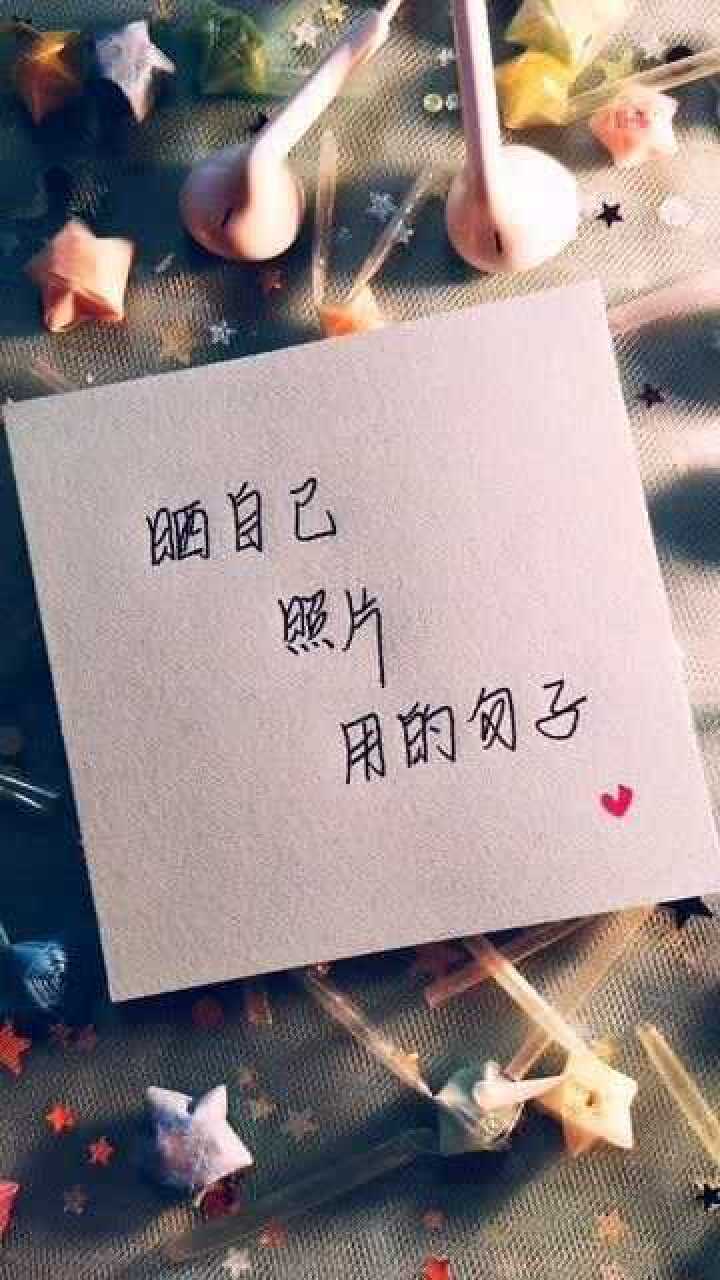 晒自己
照片
用的句子